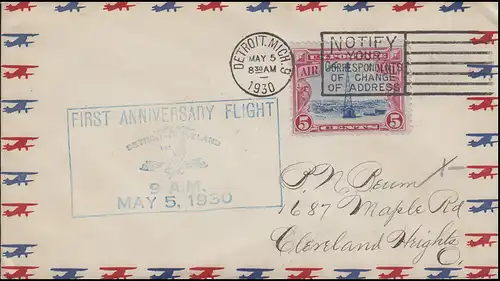 DETROIT, MICH. 8
MAY 5
8 30 AM
1930
NOTIFY
YOUR
CORRESPONDENTS
OF CHANGE
OF ADDRESS
U.S. POSTAGE
AIR
5 5
CENTS
FIRST ANNIVERSARY FLIGHT
9 A.M.
MAY 5, 1930
P. N. Beum
1687 Maple Rd
Cleveland Heights,
O.